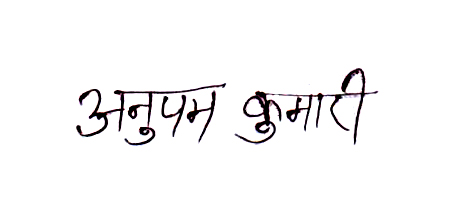 अनुपम कुमारी